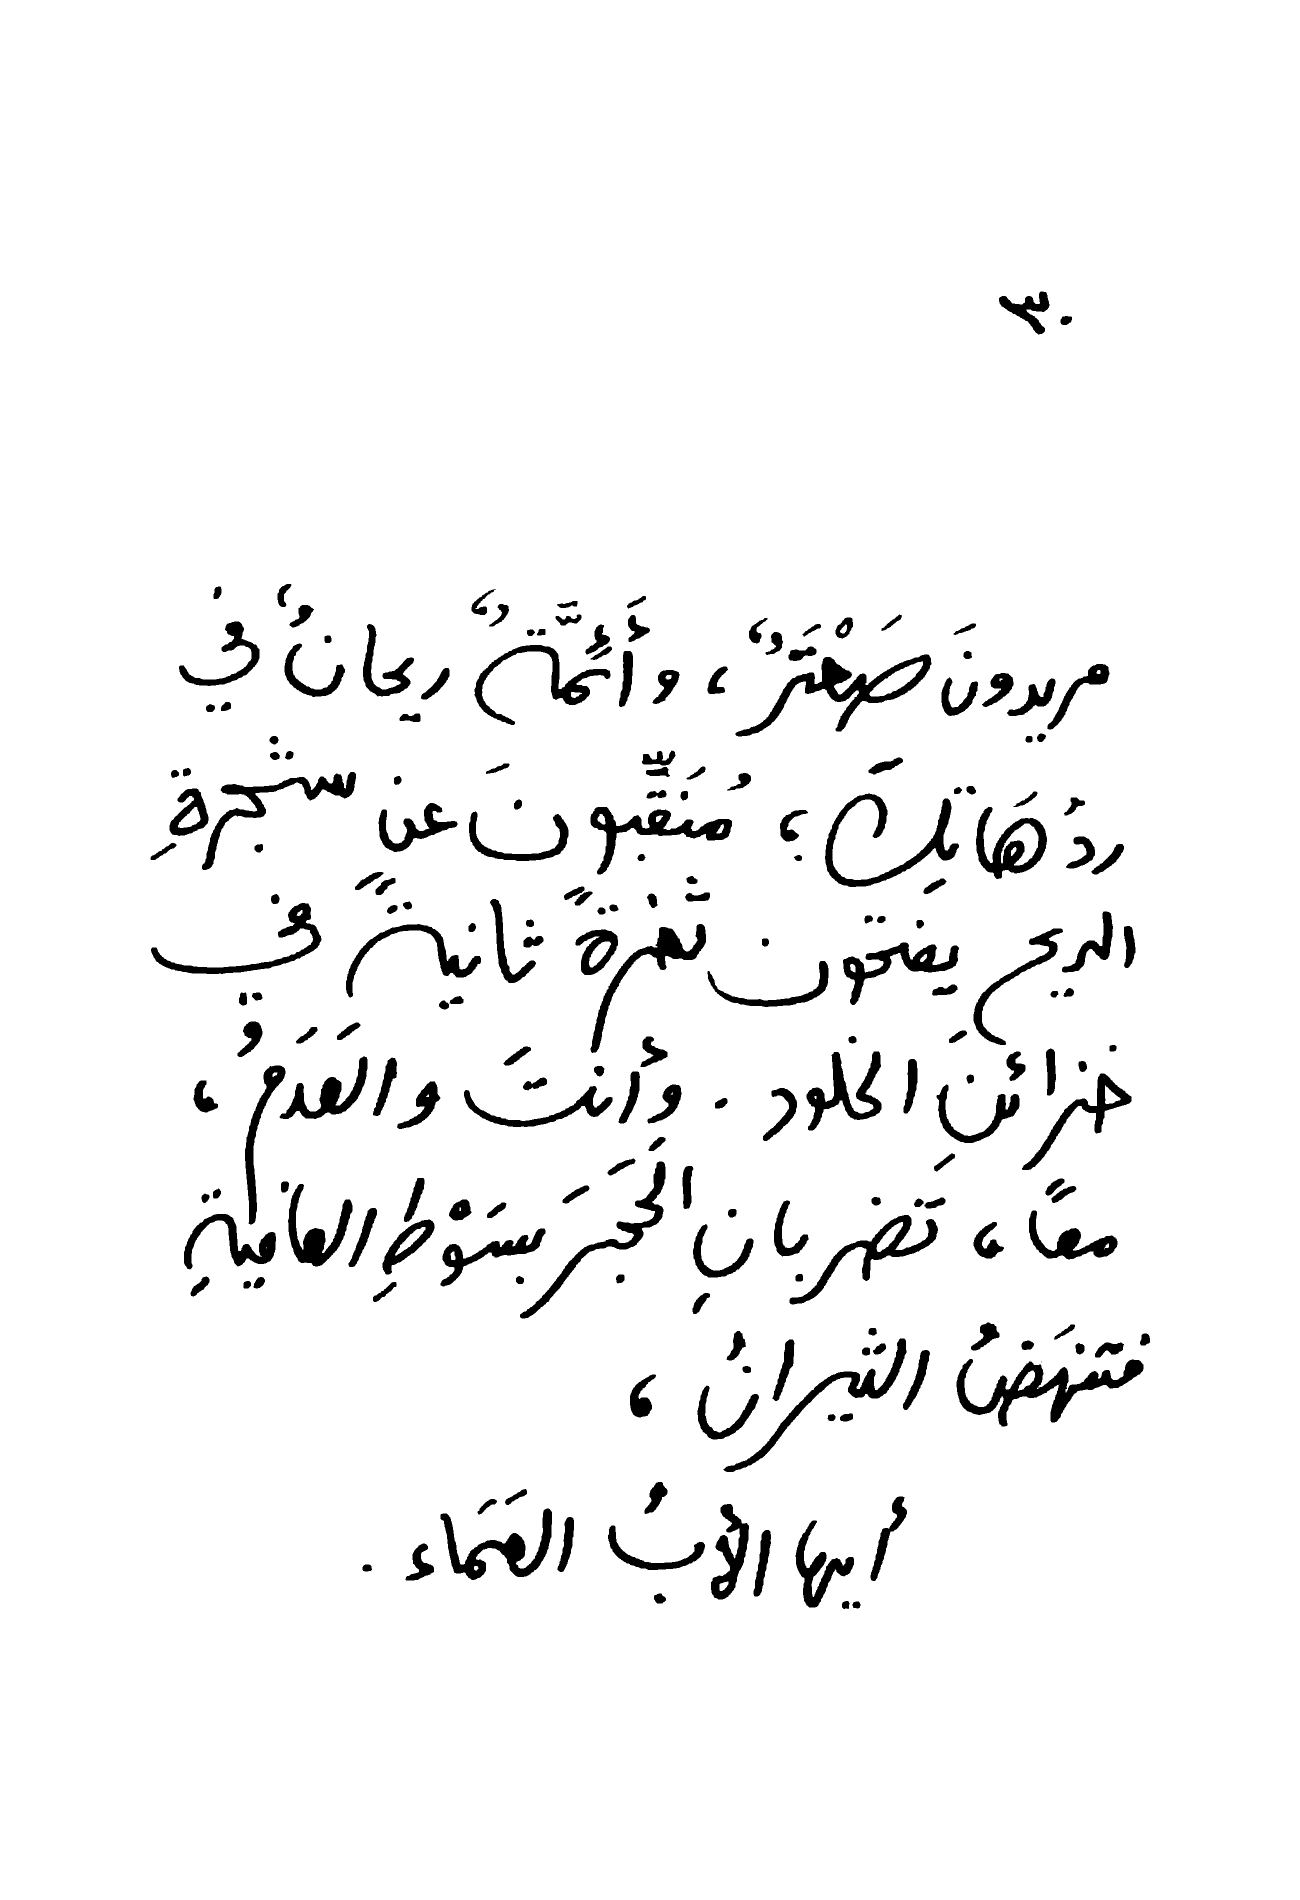 ٣٠
مريدونَ صَعْتَرٌ، وأَئمَّةٌ ريحانٌ في
ردُهَاتِكَ؛ مُنَقِّبونَ عن شجرةِ
الريح يفتحون ثَغرةً ثانيةً في
خزائنِ الخلود. وأنتَ والعَدَمُ،
معًا، تَضربانِ الحَجَرَ بسَوْطِ العافيةِ
فتنهَضُ النيرانُ،
أيها الأبُ العَمَاء.